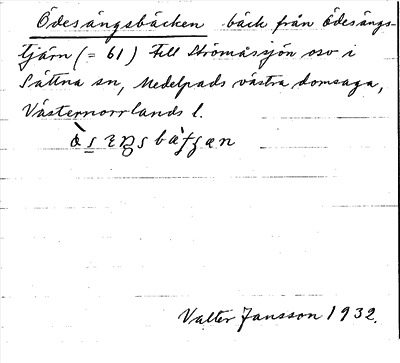 Ödesängsbäcken bäck från Ödesängs-
tjärn (= 61) till Strömåssjön osv i
Sättna sn, Medelpads västra domsaga,
Västernorrlands l.
Valter Jansson 1932.